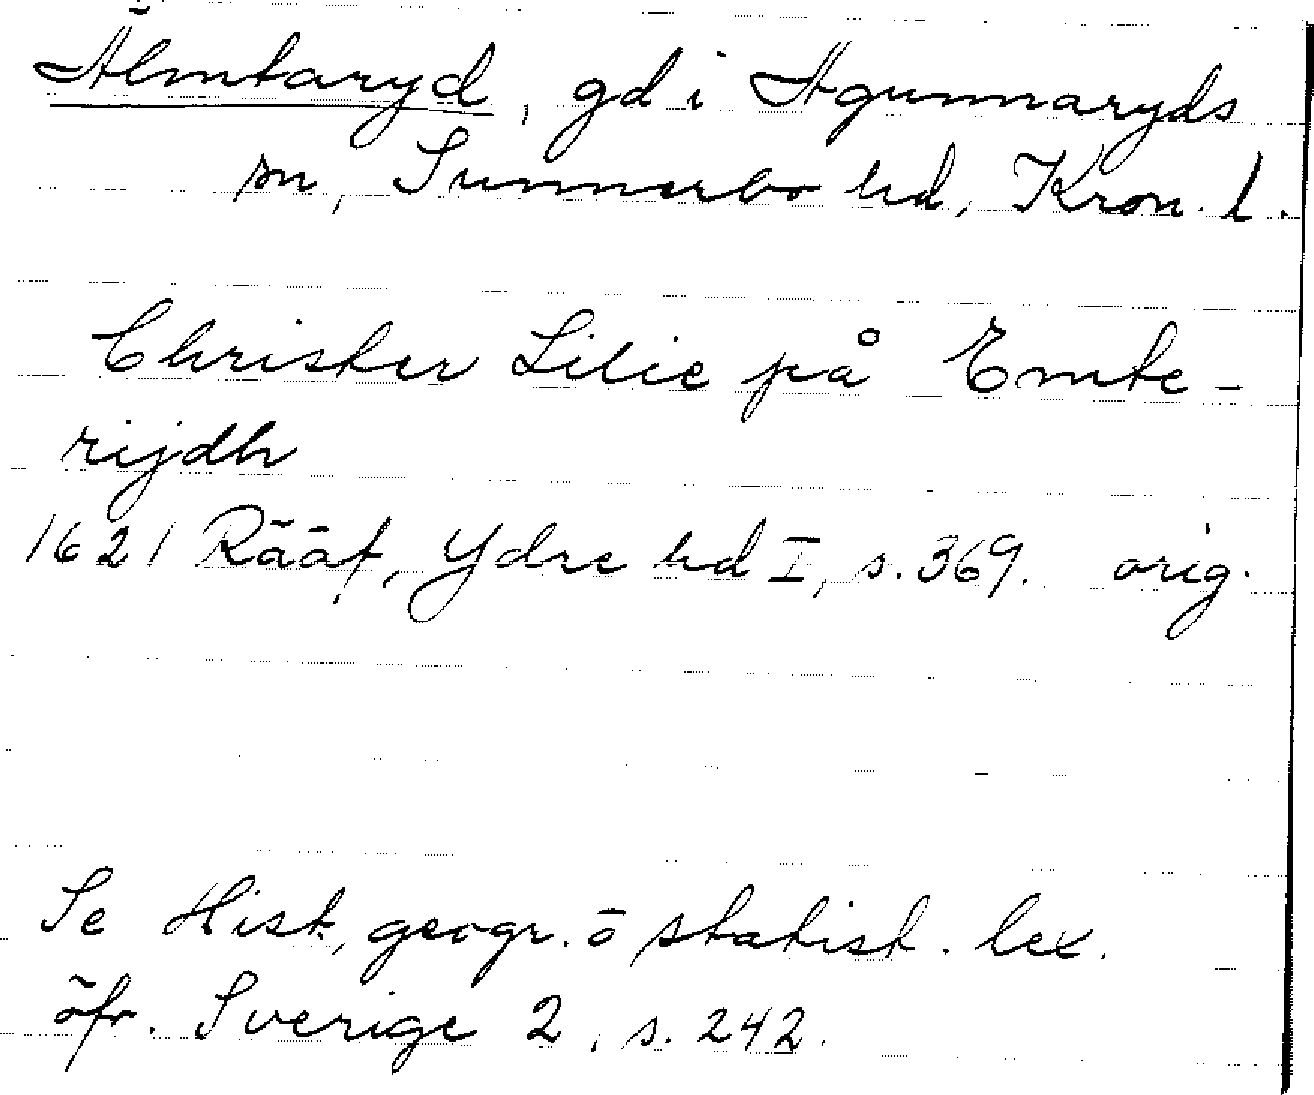 Älmtaryd, gd i Agunnaryds
sn, Sunnerbo hd, Kron. l.
Christer Lilie på Emte-
rijdh
1621 Rääf, Ydre hd I, s. 369. orig.
Se Hist, geogr. o statist. lex.
öfr. Sverige 2, s. 242.